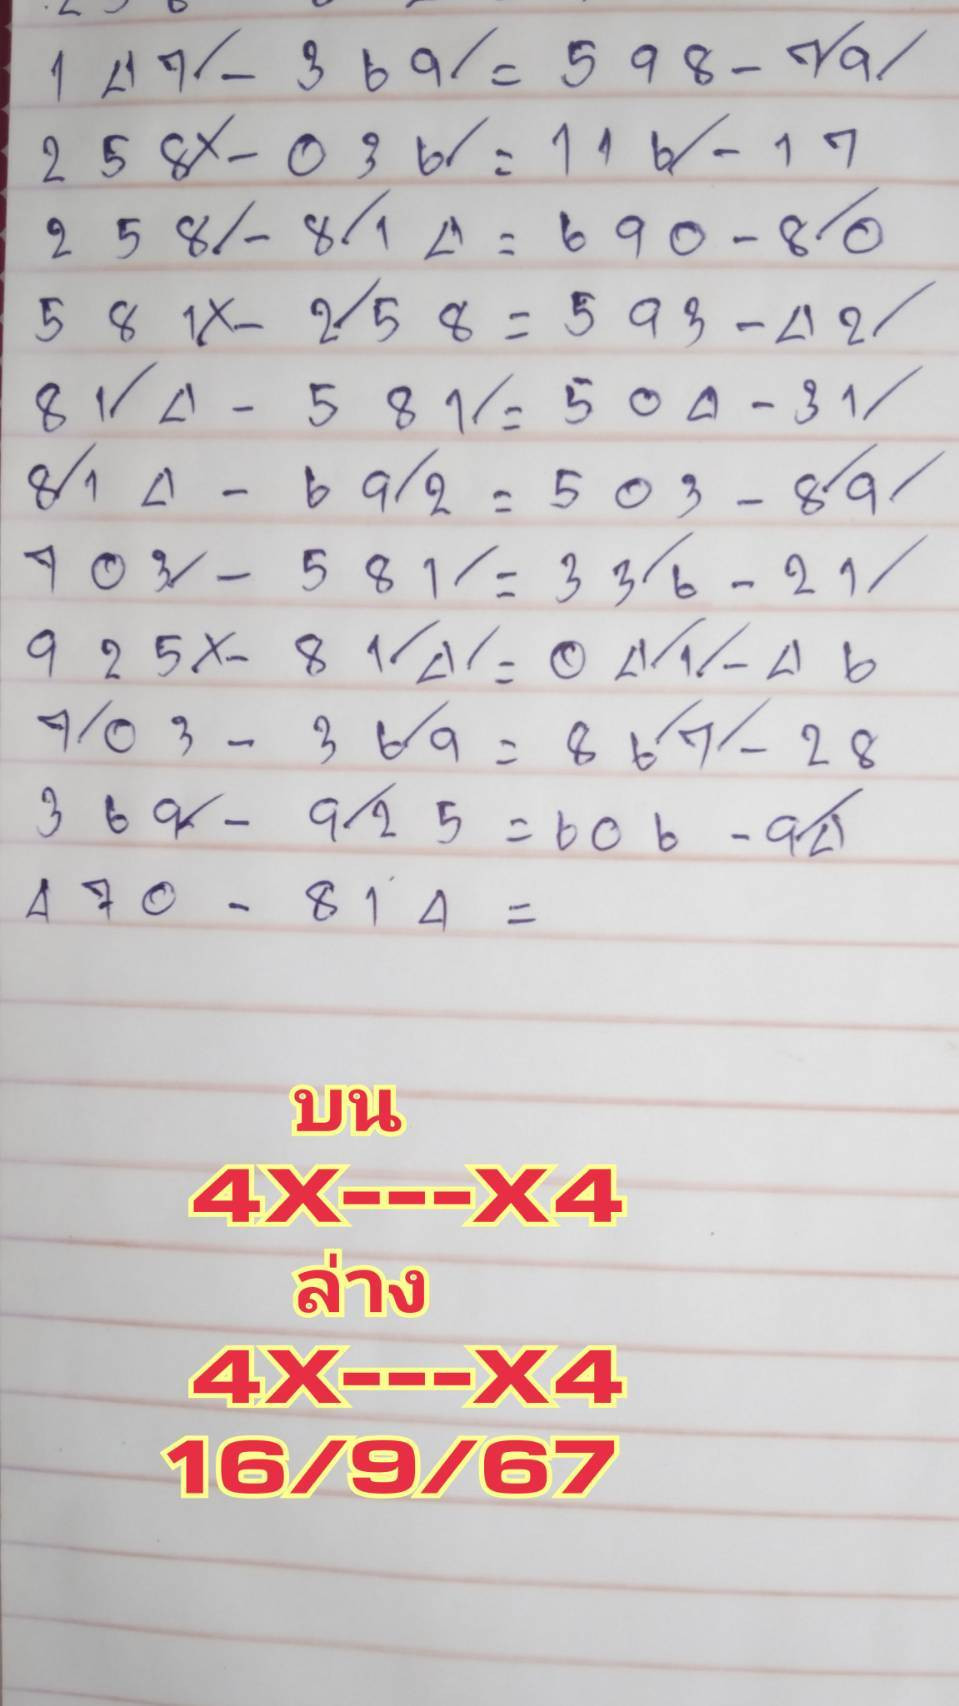 147/- 369/= 598 - 7/9/
258x- 036/= 116/- 17
258/- 8/14 = 690 - 8/0
581x- 2/58 = 593 - 42/
81/4 - 581/= 504 - 31/
8/14 - 69/2 = 503 - 8/9/
703/- 581/= 33/6 - 21/
925x- 81/4/= 04/1/- 46
7/03 - 36/9 = 86/7/- 28
369/- 9/25 = 606 - 9/4
470 - 814 =
บน
4X---X4
ล่าง
4X---X4
16/9/67